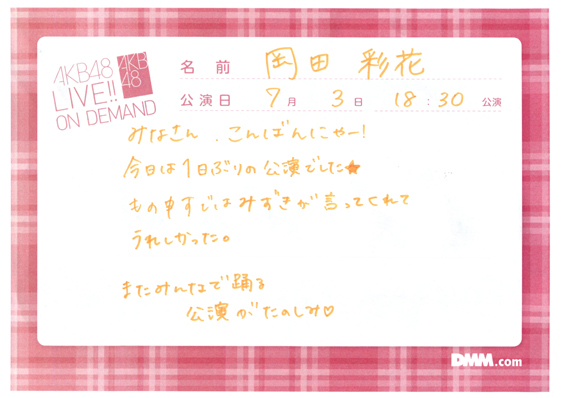 AKB48
LIVE!!
ON DEMAND
AKB
48
名 前 岡田 彩花
公演日 7月 3日 18:30 公演
みなさん、こんばんにゃー!
今日は1日ぶりの公演でした★
もの申すではみずきが言ってくれて
うれしかった。
またみんなで踊る
公演がたのしみ♡
DMM.com